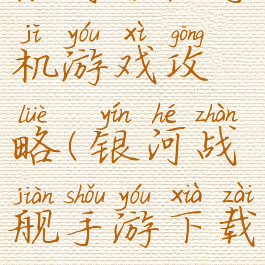 jī yóu xì gōng
机游戏攻
lüè yín hé zhàn
略(银河战
jiàn shǒu yóu xià zài
舰手游下载